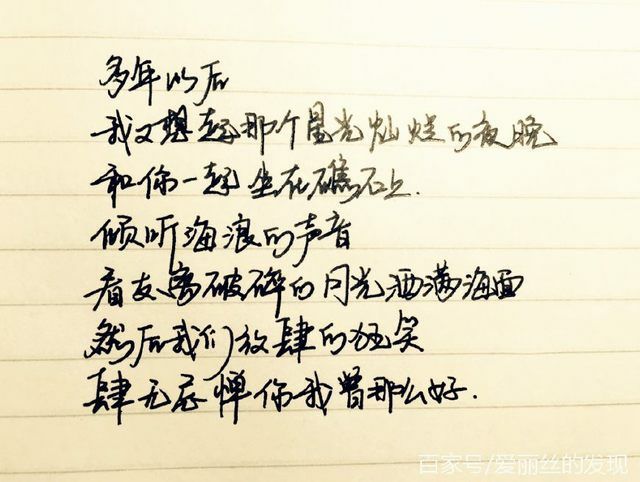 多年以后
我又想起那个星光灿烂的夜晚
和你一起坐在礁石上.
倾听海浪的声音
看支离破碎的月光洒满海面
然后我们放肆的狂笑
肆无忌惮你我曾那么好.
百家号/爱丽丝的发现